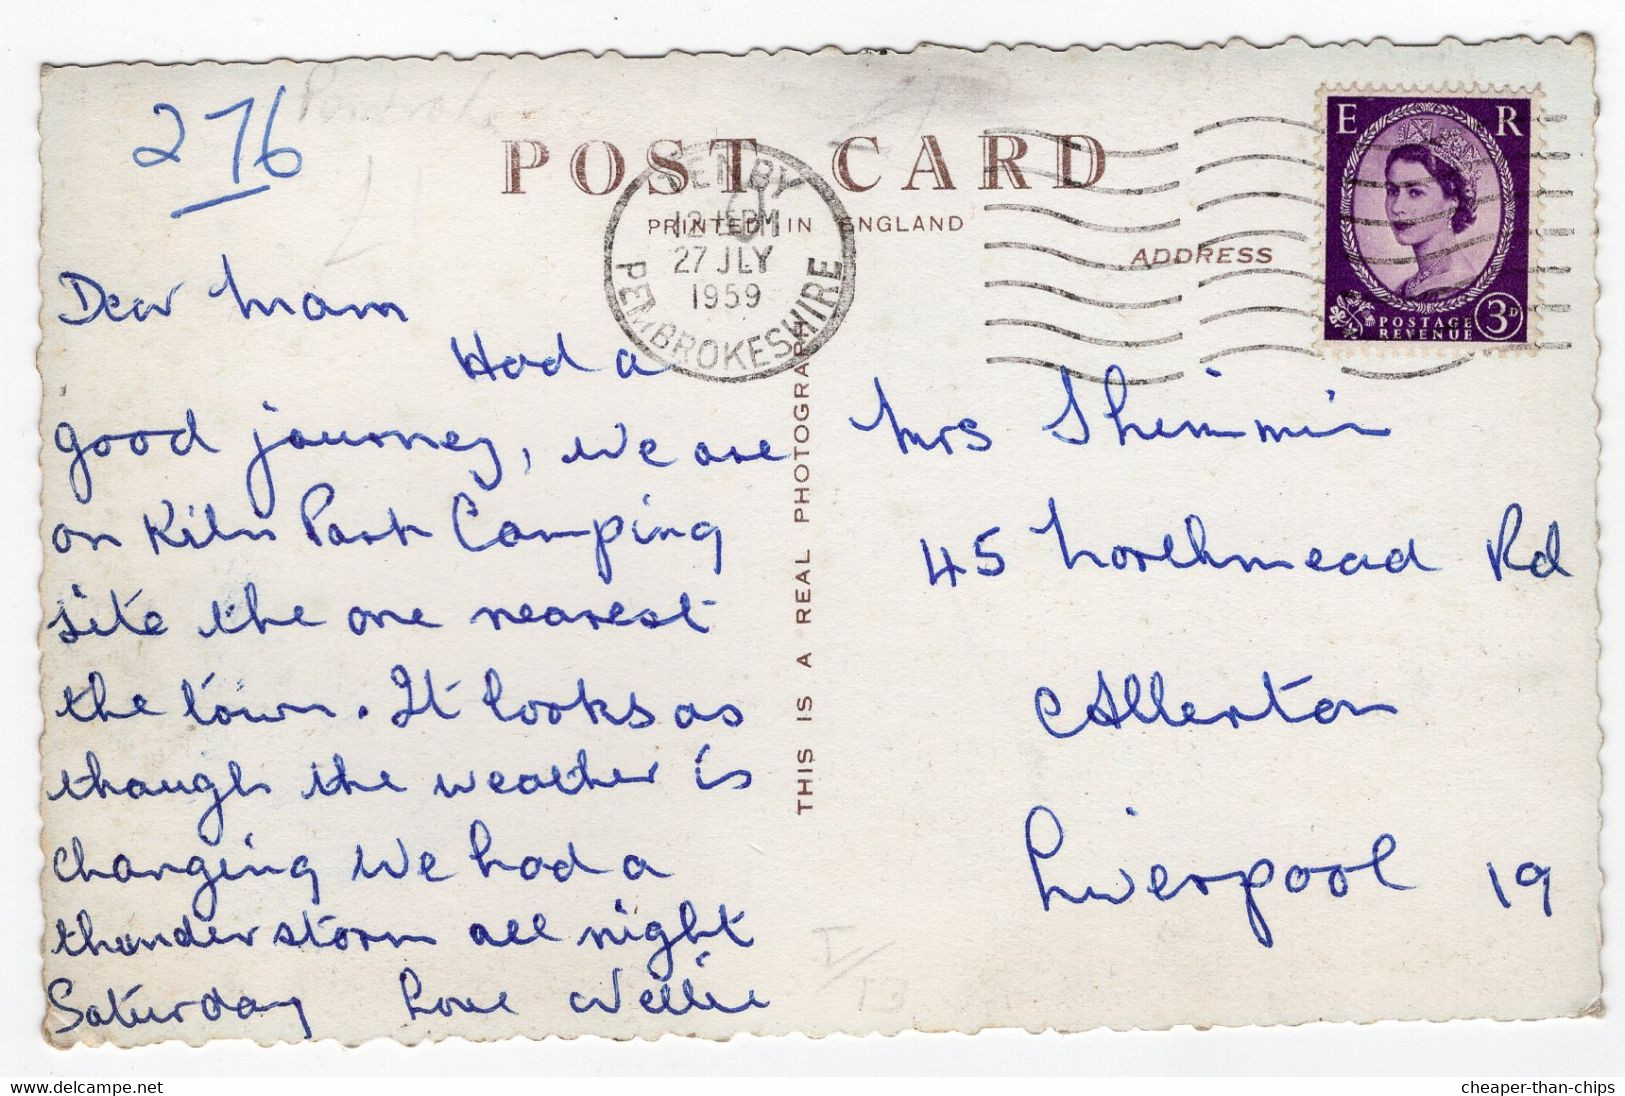 2 7/6
POST CARD
PRINTED IN ENGLAND
ADDRESS
TENBY
12 PM
27 JLY
1959
PEMBROKESHIRE
E R
POSTAGE
REVENUE
3D
Dear Mam
Had a
good journey, We are
on Kiln Park Camping
site the one nearest
the town. It looks as
though the weather is
changing We had a
thunderstorm all night
Saturday Love Nellie
THIS IS A REAL PHOTOGRAPH
Mrs Shimmin
45 Northmead Rd
Allerton
Liverpool 19
delcampe.net
cheaper-than-chips